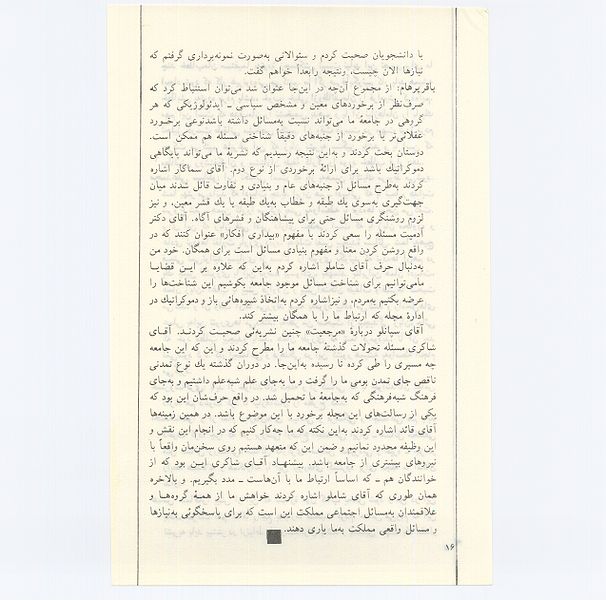 با دانشجویان صحبت کردم و سئوالاتی به‌صورت نمونه‌برداری گرفتم که
نیازها الان چیست، ونتیجه رابعداً خواهم گفت.
باقرپرهام: از مجموع آن‌چه در این‌جا عنوان شد می‌توان استنباط کرد که
صرف‌نظر از برخوردهای معین و مشخص سیاسی ـ ایدئولوژیکی که هر
گروهی در جامعهٔ ما می‌تواند نسبت به‌مسائل داشته باشدنوعی برخورد
عقلائی‌تر یا برخورد از جنبه‌های دقیقاً شناختی مسئله هم ممکن است.
دوستان بحث کردند و به‌این نتیجه رسیدیم که نشریهٔ ما می‌تواند پایگاهی
دموکراتیك باشد برای ارائهٔ برخوردی از نوع دوم. آقای سماکار اشاره
کردند به‌طرح مسائل از جنبه‌های عام و بنیادی و تفاوت قائل شدند میان
جهت‌گیری به‌سوی یك طبقه و خطاب به‌یك طبقه یا یك قشر معین، و نیز
لزوم روشنگری مسائل حتی برای پیشاهنگان و قشرهای آگاه. آقای دکتر
آدمیت مسئله را سعی کردند با مفهوم «بیداری افکار» عنوان کنند که در
واقع روشن کردن معنا و مفهوم بنیادی مسائل است برای همگان. خود من
به‌دنبال حرف آقای شاملو اشاره کردم به‌این که علاوه بر این قضایا
مامی‌توانیم برای شناخت مسائل موجود جامعه بکوشیم این شناخت‌ها را
عرضه بکنیم به‌مردم، و نیزاشاره کردم به‌اتخاذ شیوه‌هائی باز و دموکراتیك در
ادارهٔ مجله که ارتباط ما را با همگان بیشتر کند.
آقای سپانلو دربارهٔ «مرجعیت» چنین نشریه‌ئی صحبت کردند. آقای
شاکری مسئله تحولات گذشتهٔ جامعه ما را مطرح کردند و این که این جامعه
چه مسیری را طی کرده تا رسیده به‌این‌جا. در دوران گذشته یك نوع تمدنی
ناقص جای تمدن بومی ما را گرفت و ما به‌جای علم شبه‌علم داشتیم و به‌جای
فرهنگ شبه‌فرهنگی که به‌جامعهٔ ما تحمیل شد. در واقع حرف‌شان این بود که
یکی از رسالت‌های این مجله برخورد با این موضوع باشد. در همین زمینه‌ها
آقای قائد اشاره کردند به‌این نکته که ما چه‌کار کنیم که در انجام این نقش و
این وظیفه محدود نمانیم و ضمن این که متعهد هستیم روی سخن‌مان واقعاً با
نیروهای بیشتری از جامعه باشد. پیشنهاد آقای شاکری این بود که از
خوانندگان هم ـ که اساساً ارتباط ما با آن‌هاست ـ مدد بگیریم. و بالاخره
همان طوری که آقای شاملو اشاره کردند خواهش ما از همهٔ گروه‌ها و
علاقمندان به‌مسائل اجتماعی مملکت این است که برای پاسخگوئی به‌نیازها
و مسائل واقعی مملکت به‌ما یاری دهند.
۱۶